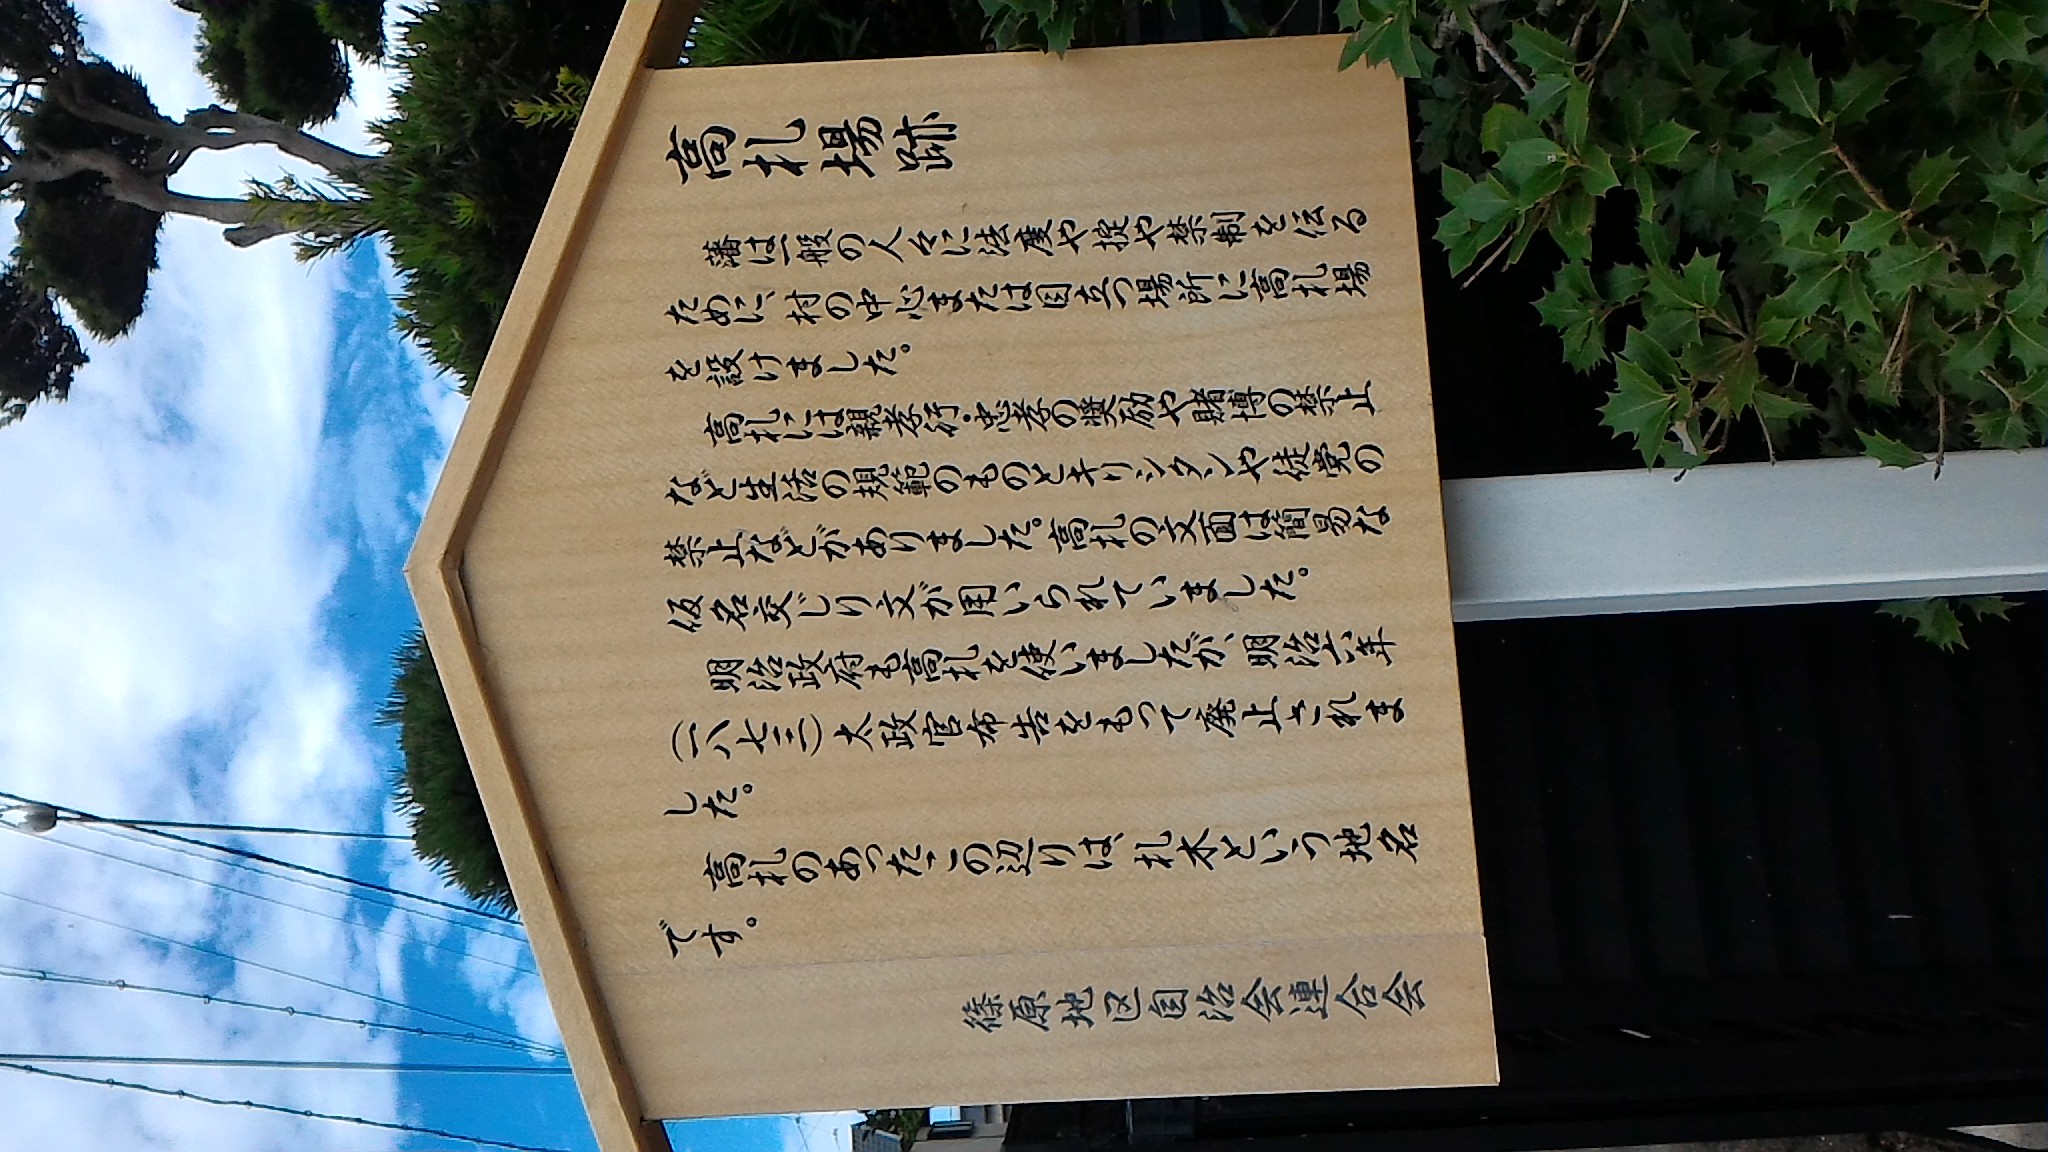 高札場跡
藩は一般の人々に法度や掟や禁制を伝る
ために、村の中心または目立つ場所に高札場
を設けました。
高札には親孝行・忠孝の奨励や賭博の禁止
など生活の規範のものとキリシタンや徒党の
禁止などがありました。高札の文面は簡易な
仮名交じり文が用いられていました。
明治政府も高札を使いましたが、明治六年
(一八七三)太政官布告をもって廃止されま
した。
高札のあったこの辺りは、札木という地名
です。
篠原地区自治会連合会